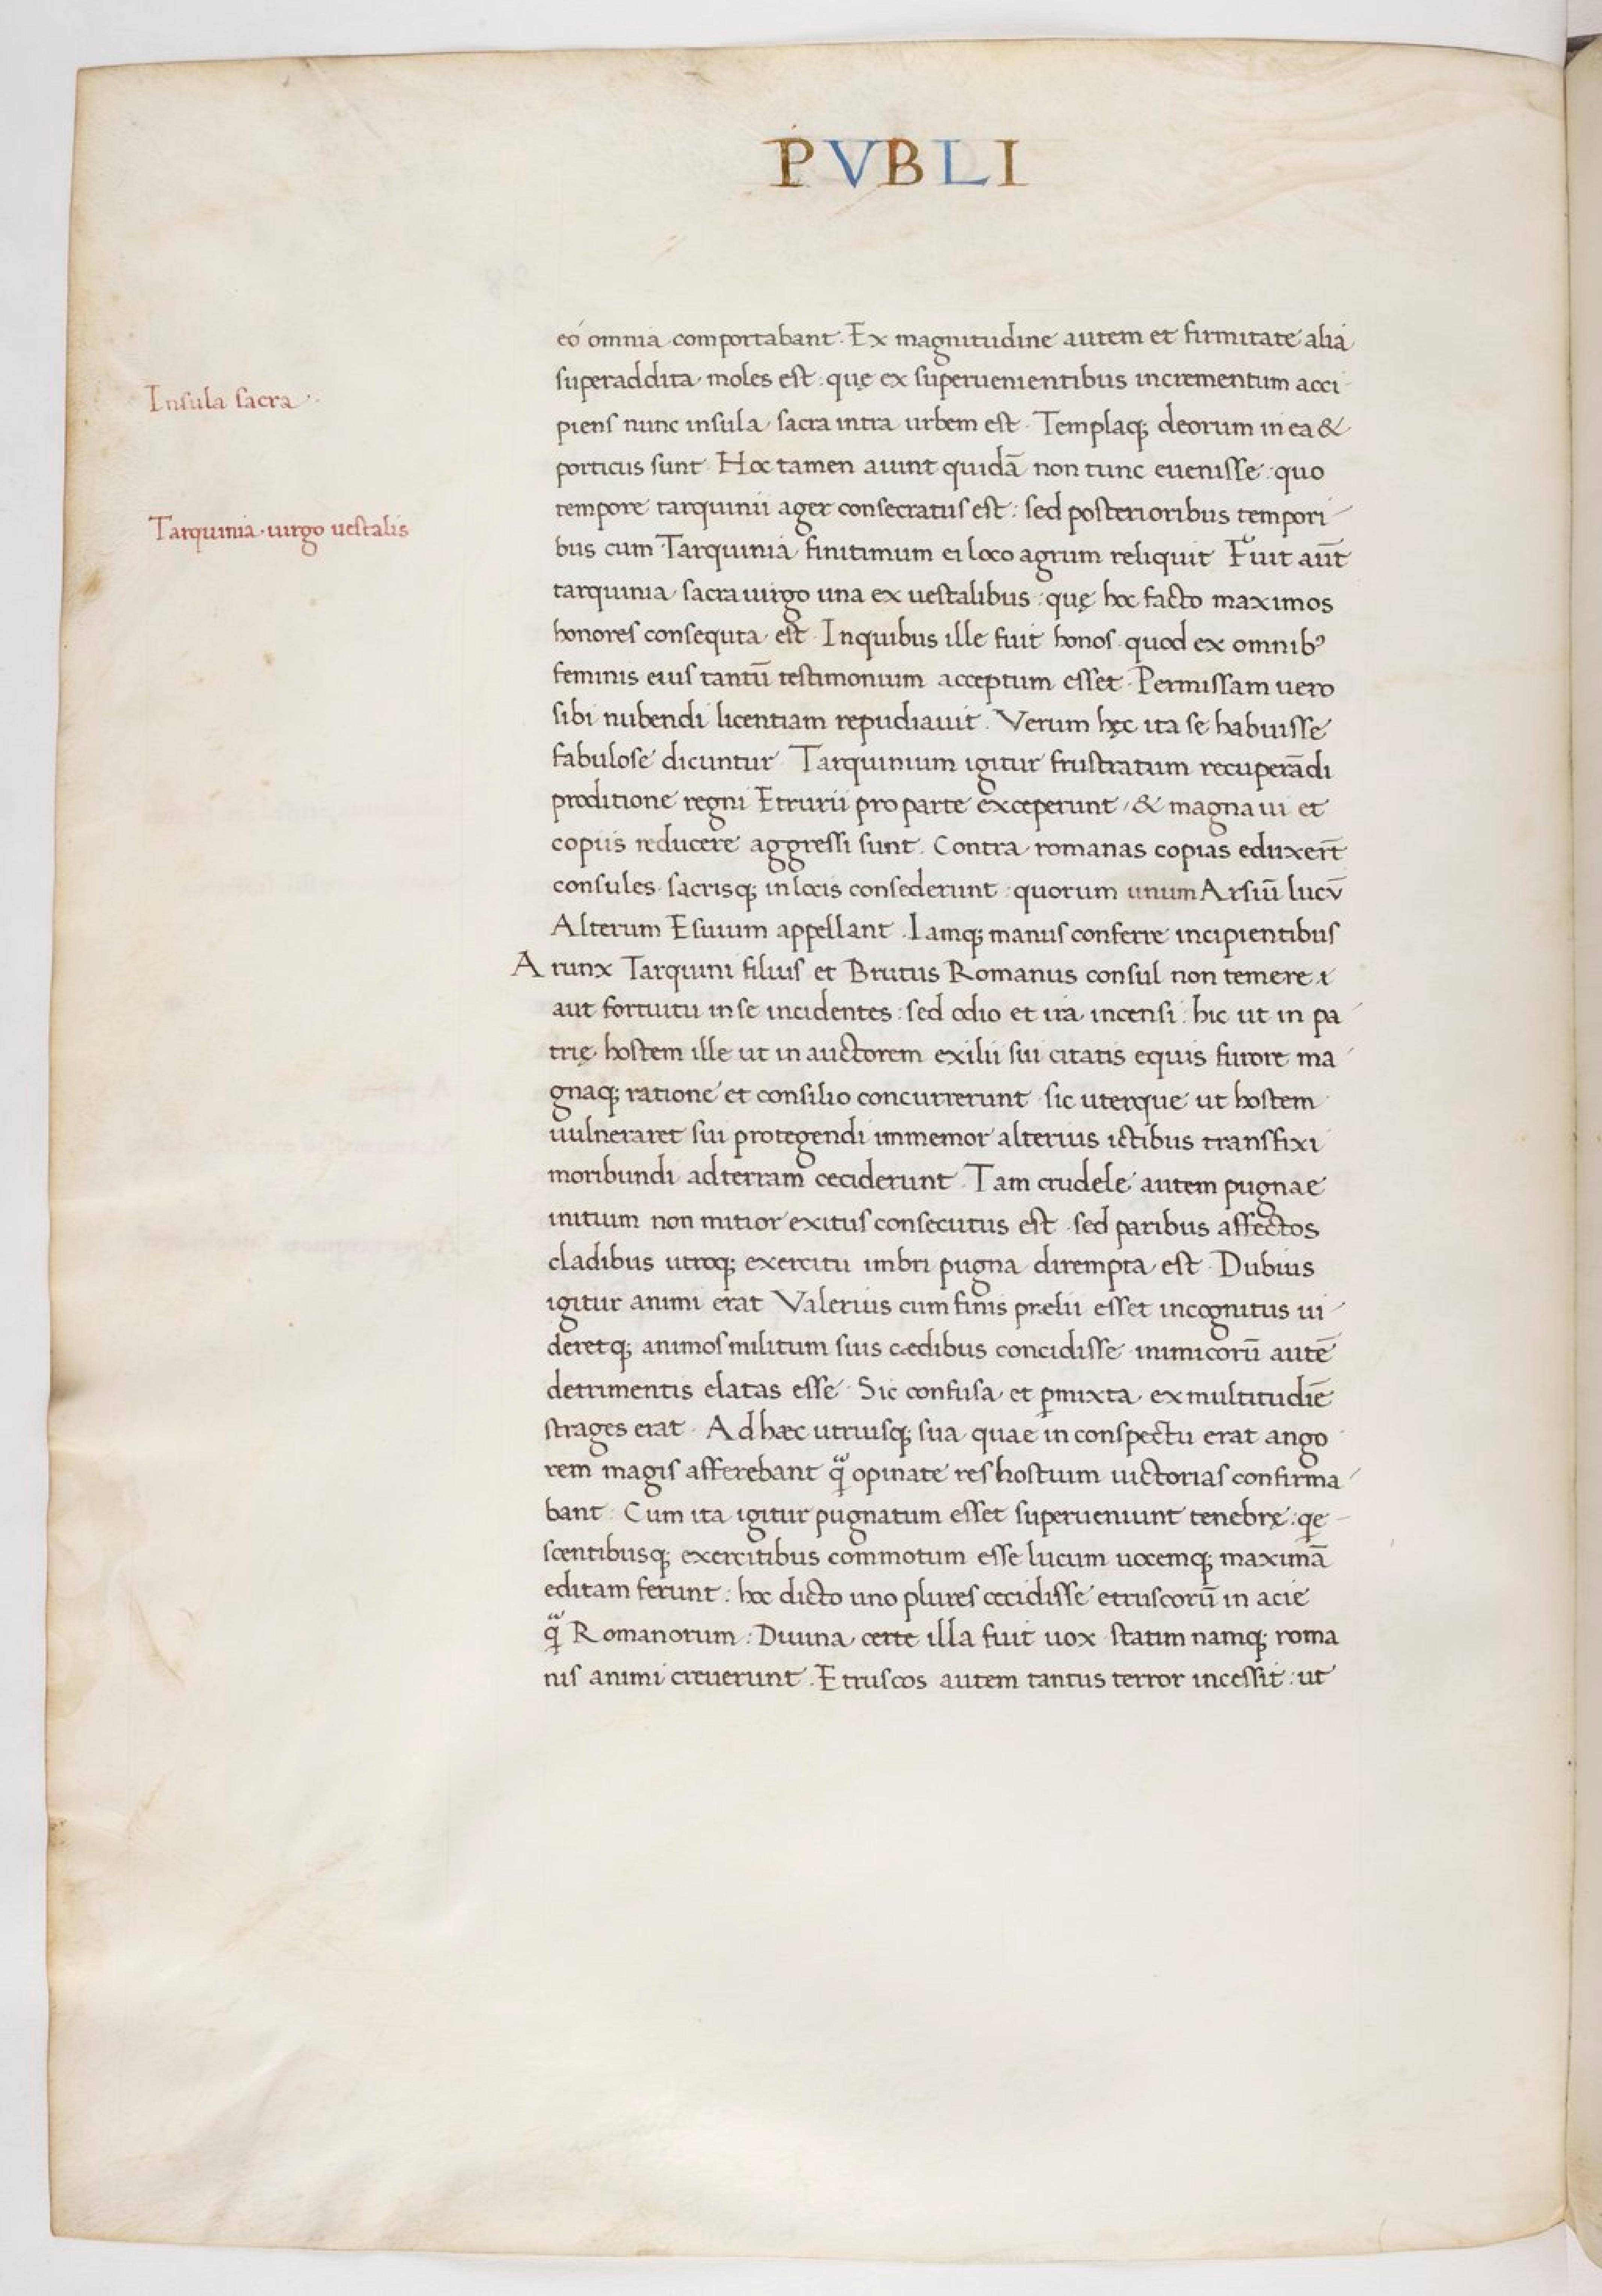 PVBLI
eo omnia comportabant. Ex magnitudine autem et firmitate alia
superaddita moles est: quę ex superuenientibus incrementum acci-
Insula sacra.
piens nunc insula sacra intra urbem est. Templaq; deorum in ea &
porticus sunt. Hoc tamen aiunt quidā non tunc euenisse: quo
tempore tarquinii ager consecratus est: sed posterioribus tempori-
Tarquinia uirgo uestalis
bus cum Tarquinia finitimum ei loco agrum reliquit. Fuit aūt
tarquinia sacra uirgo una ex uestalibus: quę hoc facto maximos
honores consequta est. Inquibus ille fuit honos quod ex omnibꝰ
feminis eius tantū testimonium acceptum esset. Permissam uero
sibi nubendi licentiam repudiauit. Verum hęc ita se habuisse
fabulose dicuntur. Tarquinium igitur frustratum recuperādi
proditione regni Etrurii pro parte exceperunt, & magna ui et
copiis reducere aggressi sunt. Contra romanas copias eduxerūt
consules sacrisq; in locis consederunt: quorum unum Arsiū lucū
Alterum Esuuum appellant. Iamq; manus conferre incipientibus
Arunx Tarquini filius et Brutus Romanus consul non temere
aut fortuitu in se incidentes: sed odio et ira incensi: hic ut in pa-
trię hostem ille ut in auctorem exilii sui citatis equis furore ma-
gnaq; ratione et consilio concurrerunt. sic uterque ut hostem
uulneraret sui protegendi immemor alterius ictibus transfixi
moribundi ad terram ceciderunt. Tam crudele autem pugnae
initium non mitior exitus consecutus est. sed paribus affectos
cladibus utroq; exercitu imbri pugna dirempta est. Dubius
igitur animi erat Valerius cum finis prælii esset incognitus ui-
deretq; animos militum suis cædibus concidisse inimicorū autē
detrimentis elatas esse. Sic confusa et ꝑmixta ex multitudiē
strages erat. Ad hæc utriusq; sua quae in conspectu erat ango
rem magis afferebant q̄ opinate res hostium uictorias confirma-
bant. Cum ita igitur pugnatum esset superueniunt tenebrę: qe-
scentibusq; exercitibus commotum esse lucum uocemq; maximā
editam ferunt: hoc dicto uno plures cecidisse etruscorū in acie
q̄ Romanorum: Diuina certe illa fuit uox statim namq; roma
nis animi creuerunt. Etruscos autem tantus terror incessit: ut